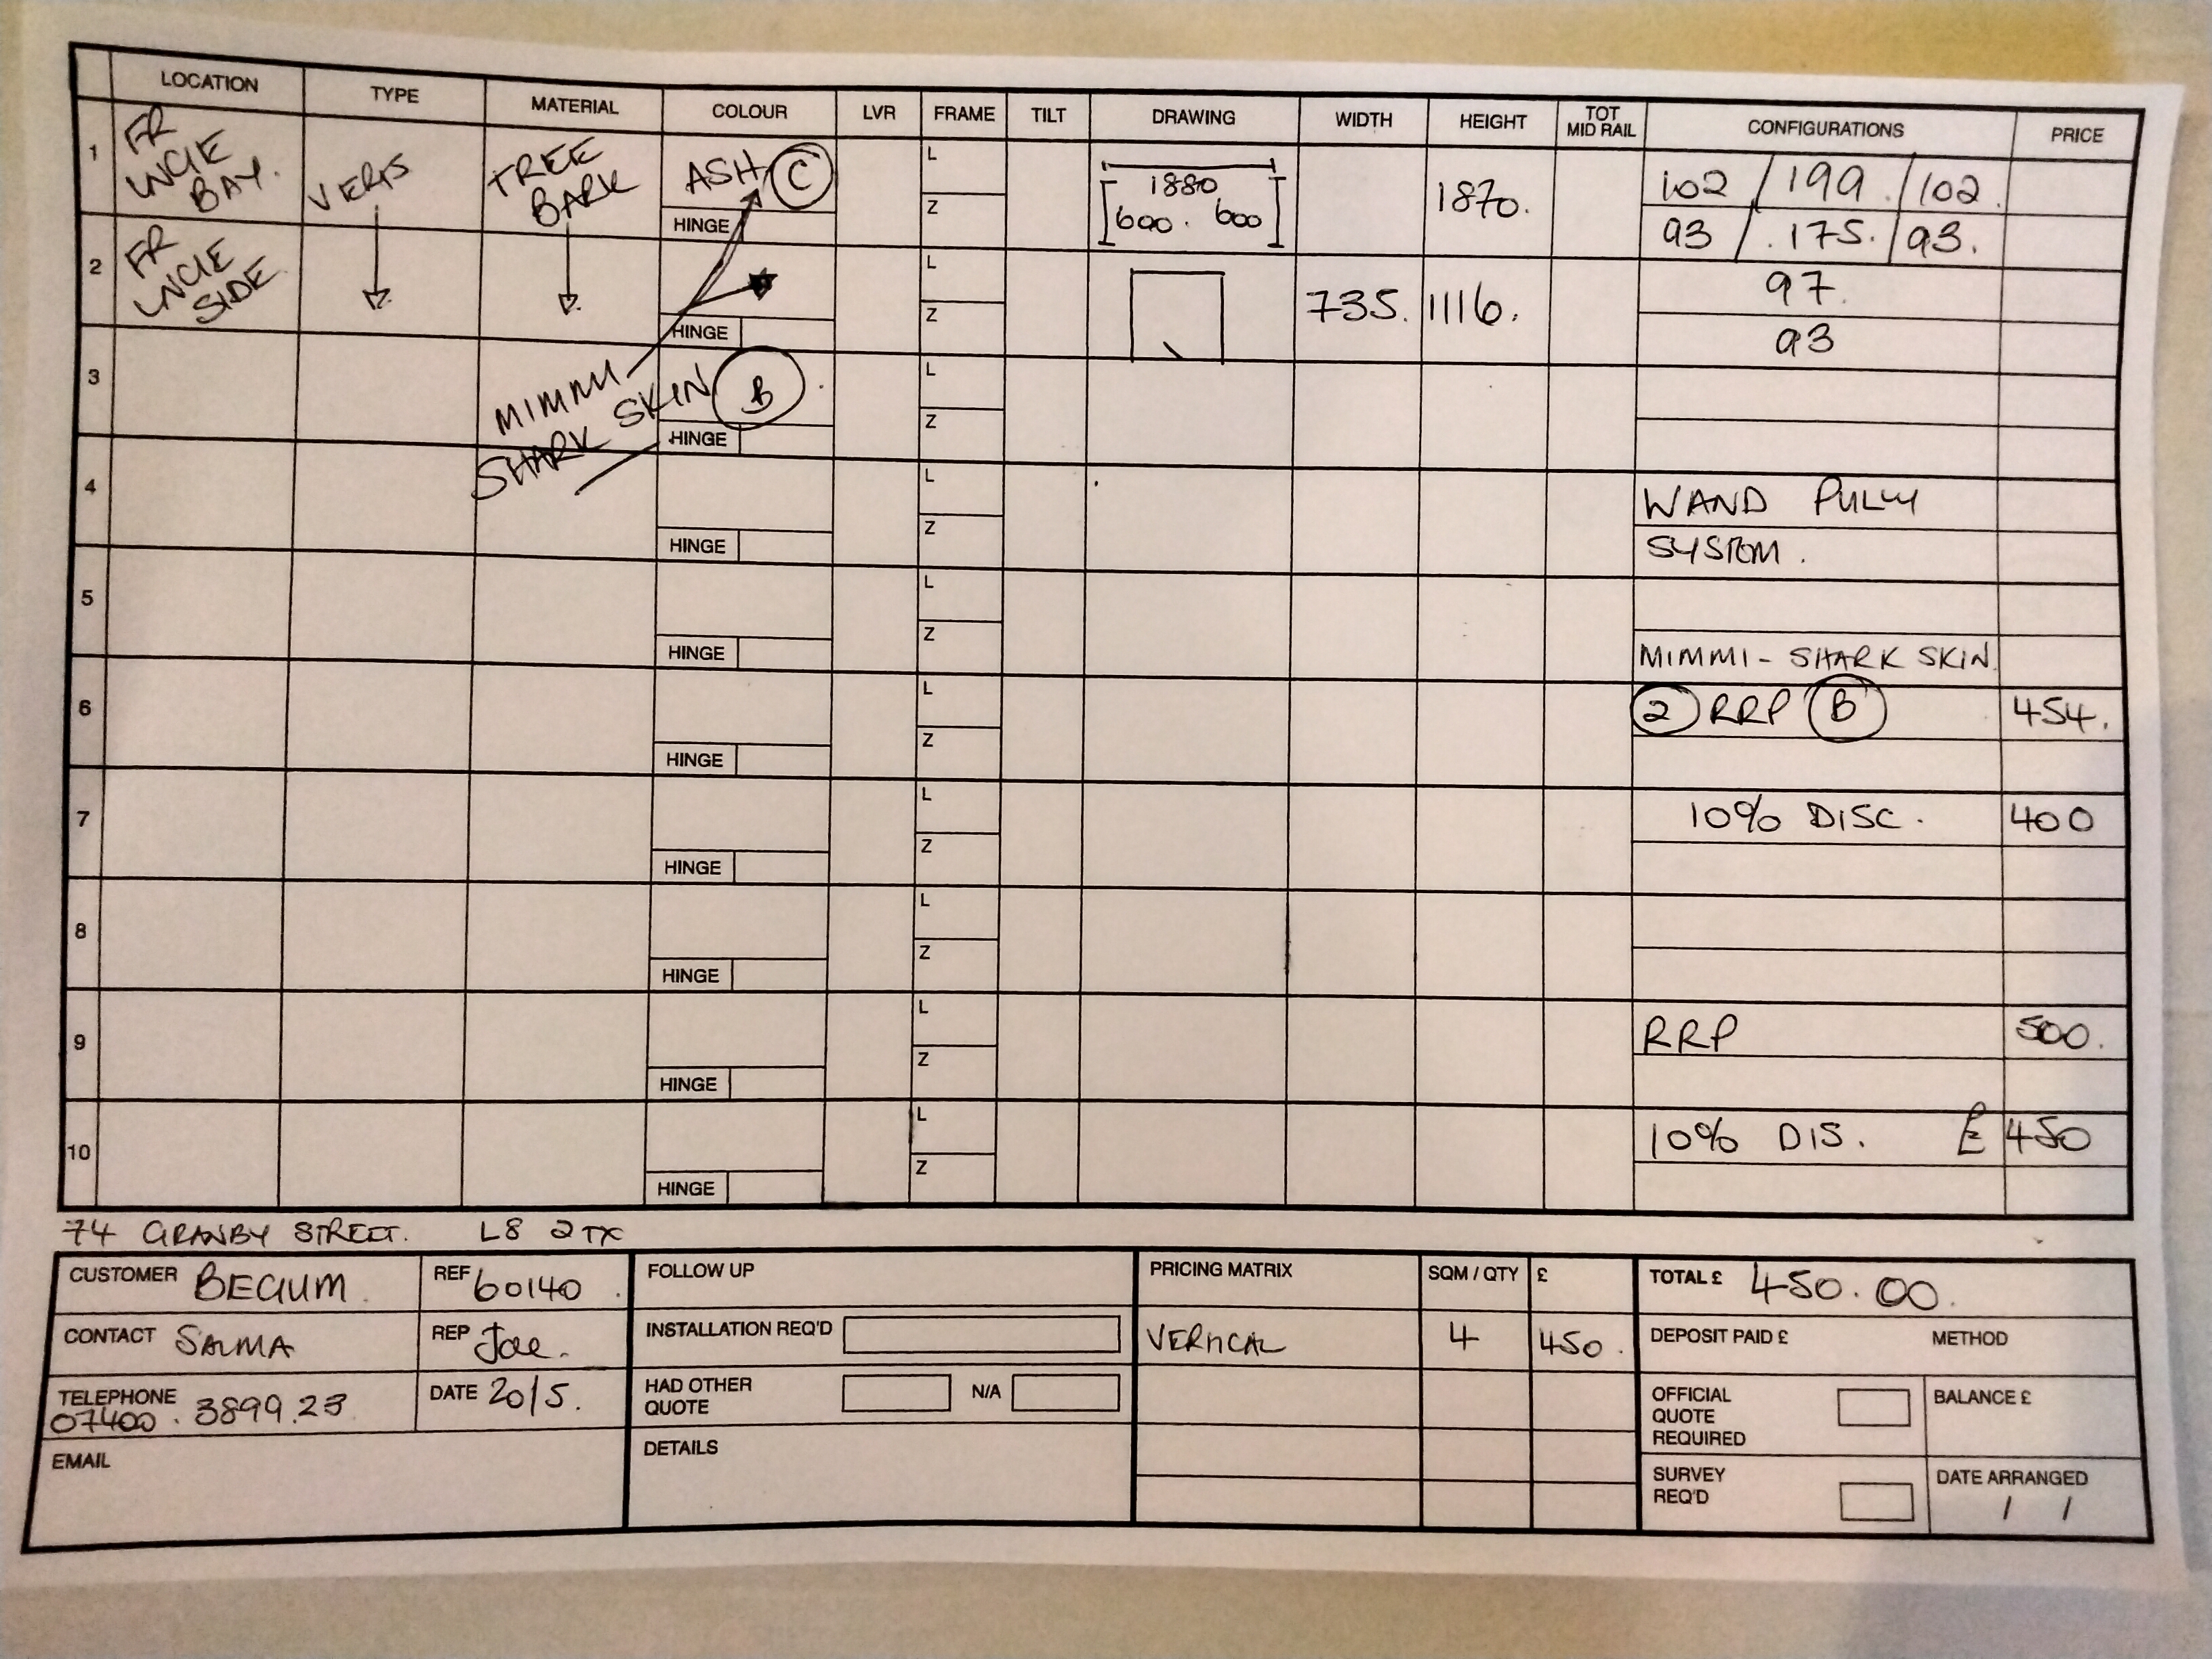 LOCATION TYPE MATERIAL COLOUR LVR FRAME TILT DRAWING WIDTH HEIGHT TOT MID RAIL CONFIGURATIONS PRICE
1 FR UNCIE BAY. VERTS TREE BARK ASH C HINGE L Z 1880 600. 600 1870. 102 / 199 / 102.
93 / .175. / 93.
2 FR UNCIE SIDE HINGE L Z 735. 1116. 97.
93
3 MIMMI SHARK SKIN B HINGE L Z
4 HINGE L Z WAND PULLY
SYSTEM.
5 HINGE L Z
MIMMI - SHARK SKIN.
6 HINGE L Z 2 RRP B 454.
7 HINGE L Z 10% DISC. 400
8 HINGE L Z
9 HINGE L Z RRP 500.
10 HINGE L Z 10% DIS. £ 450
74 GRANBY STREET. L8 2TX
CUSTOMER BEGUM. REF 60140.
CONTACT SALMA REP Joe.
TELEPHONE 07400. 3899.23 DATE 20/5.
EMAIL
FOLLOW UP
INSTALLATION REQ'D
HAD OTHER QUOTE N/A
DETAILS
PRICING MATRIX SQM / QTY £
VERTICAL 4 450.
TOTAL £ 450.00.
DEPOSIT PAID £ METHOD
OFFICIAL QUOTE REQUIRED BALANCE £
SURVEY REQ'D DATE ARRANGED
/ /